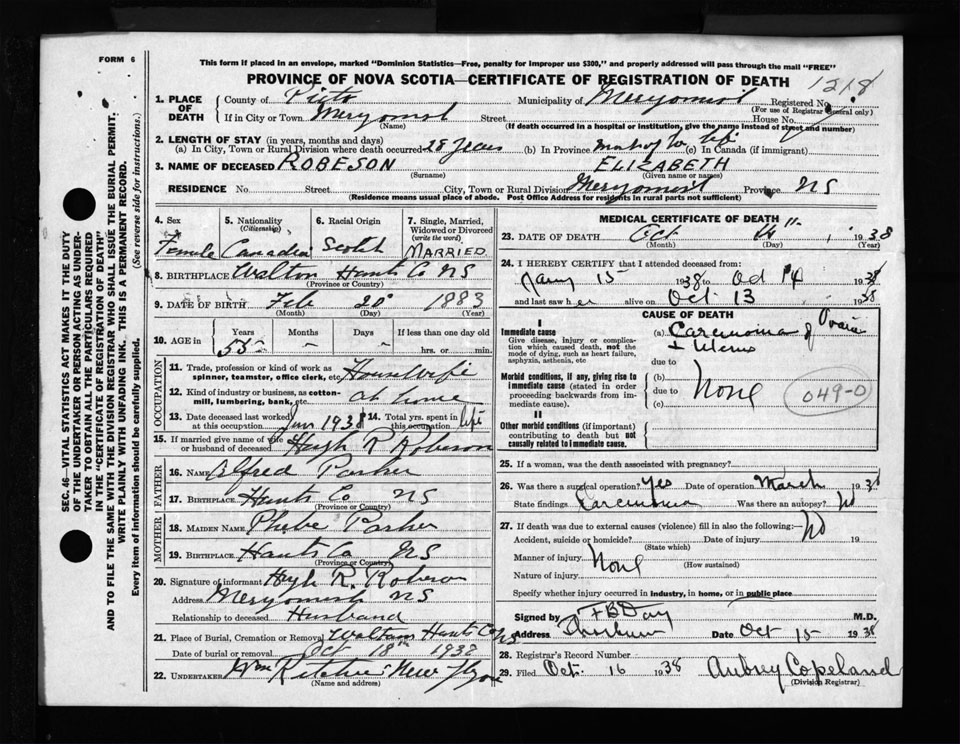 FORM 6
This form if placed in an envelope, marked "Dominion Statistics—Free, penalty for improper use $300," and properly addressed will pass through the mail "FREE"
PROVINCE OF NOVA SCOTIA—CERTIFICATE OF REGISTRATION OF DEATH
1218
1. PLACE OF DEATH
County of Municipality of Merigomish Registered No.
(For use of Registrar General only)
If in City or Town Merigomish Street House No.
(Name) (If death occurred in a hospital or institution, give the name instead of street and number)
2. LENGTH OF STAY (in years, months and days)
(a) In City, Town or Rural Division where death occurred 28 years (b) In Province (c) In Canada (if immigrant)
3. NAME OF DECEASED ROBESON ELIZABETH
(Surname) (Given name or names)
RESIDENCE No. Street City, Town or Rural Division Merigomish Province NS
(Residence means usual place of abode. Post Office Address for residents in rural parts not sufficient)
4. Sex Female
5. Nationality (Citizenship) Canadian
6. Racial Origin Scotch
7. Single, Married, Widowed or Divorced (write the word) MARRIED
8. BIRTHPLACE Walton Hants Co NS
(Province or Country)
9. DATE OF BIRTH Feb 20 1883
(Month) (Day) (Year)
10. AGE Years 55 Months – Days – If less than one day old hrs. or min.
OCCUPATION
11. Trade, profession or kind of work as spinner, teamster, office clerk, etc. Housewife
12. Kind of industry or business, as cotton-mill, lumbering, bank, etc. at home
13. Date deceased last worked at this occupation 1938 14. Total yrs. spent in this occupation life
15. If married give name of wife or husband of deceased Hugh R Robeson
FATHER
16. NAME Alfred Parker
17. BIRTHPLACE Hants Co NS
(Province or Country)
MOTHER
18. MAIDEN NAME Phebe Parker
19. BIRTHPLACE Hants Co NS
(Province or Country)
20. Signature of informant Hugh R. Robeson
Address Merigomish NS
Relationship to deceased Husband
21. Place of Burial, Cremation or Removal Hants Co NS
Date of burial or removal Oct 18th 1938
22. UNDERTAKER Wm Ritchie New
(Name and address)
MEDICAL CERTIFICATE OF DEATH
23. DATE OF DEATH Oct 1938
(Month) (Day) (Year)
24. I HEREBY CERTIFY that I attended deceased from:
15 1938 to Oct 14 1938
and last saw her alive on Oct 13 1938
CAUSE OF DEATH
I
Immediate cause
Give disease, injury or complication which caused death, not the mode of dying, such as heart failure, asphyxia, asthenia, etc
(a) Carcinoma of
+ Uterus
due to
Morbid conditions, if any, giving rise to immediate cause (stated in order proceeding backwards from immediate cause).
(b) None
due to
(c)
049-0
II
Other morbid conditions (if important) contributing to death but not causally related to immediate cause.
25. If a woman, was the death associated with pregnancy?
26. Was there a surgical operation? Yes Date of operation March 1938
State findings Carcinoma Was there an autopsy? No
27. If death was due to external causes (violence) fill in also the following:— No
Accident, suicide or homicide? Date of injury 19
(State which)
Manner of injury None
(How sustained)
Nature of injury
Specify whether injury occurred in industry, in home, or in public place
Signed by F B Day M.D.
Address Date Oct 15 1938
28. Registrar's Record Number
29. Filed Oct. 16 1938 Aubrey Copeland
(Division Registrar)
SEC. 46—VITAL STATISTICS ACT MAKES IT THE DUTY
OF THE UNDERTAKER OR PERSON ACTING AS UNDER-
TAKER "TO OBTAIN ALL THE PARTICULARS REQUIRED
IN THE "CERTIFICATE OF REGISTRATION OF DEATH"
AND TO FILE THE SAME WITH THE DIVISION REGISTRAR WHO SHALL ISSUE THE BURIAL PERMIT.
WRITE PLAINLY WITH UNFADING INK. THIS IS A PERMANENT RECORD.
Every item of information should be carefully supplied. (See reverse side for instructions.)